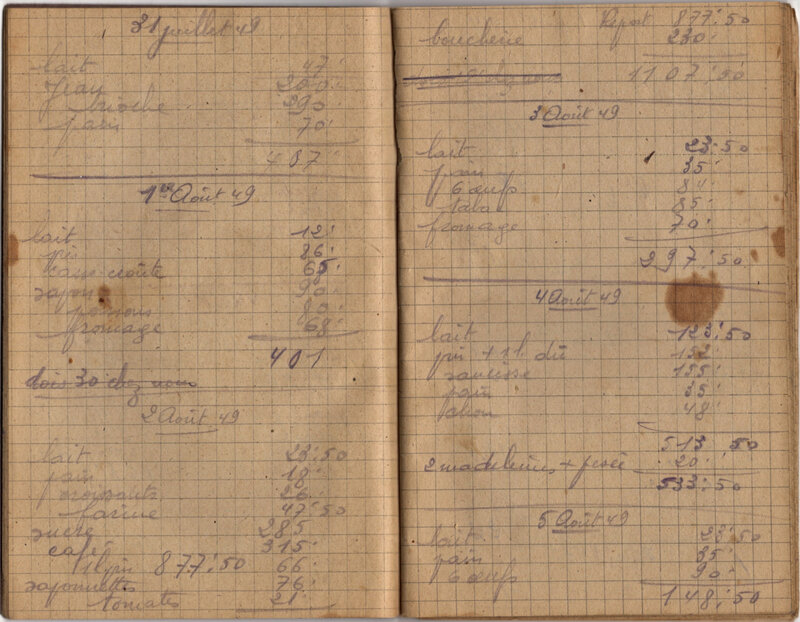 31 juillet 49
lait 47·
200·
brioche 290·
pain 70·
487
1er Août 49
lait 12·
pin 86·
casse croûte 65·
savon 90·
poissons 80·
fromage 68·
401
dois 30 chez nous
2 Août 49
lait 23·50
pain 18·
croissants 26·
farine 47·50
sucre 285
café 315·
1 l pin 877·50 66·
savonnettes 76·
tomates 21·
Report 877·50
boucherie 230·
1107·50
3 Août 49
lait 23·50
pain 35·
6 œufs 84·
tabac 85·
fromage 70·
297·50
4 Août 49
lait 123·50
pin + 1 l. dû 152·
saucisse 155·
pain 35·
chou 48·
513·50
2 madeleines + 20·
533·50
5 Août 49
lait 23·50
pain 35·
6 œufs 90·
148·50